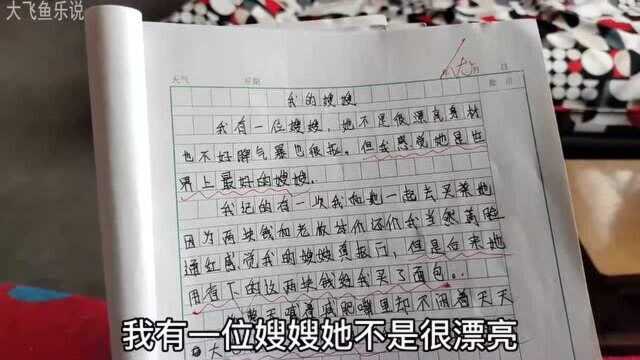 大飞鱼乐说
天气 日期
我的嫂嫂
我有一位嫂嫂，她不是很漂亮身材
也不好脾气暴也很抠。但我感觉她是世
界上最好的嫂嫂。
我记的有一次我和她一起去买菜她
因为两块钱和老板讨价还价我当然羞脸
通红感觉我的嫂嫂真抠门，但是后来她
用省下的这两块钱给我买了面包。
天喊着减肥嘴里却不闲着天天
大
我有一位嫂嫂她不是很漂亮